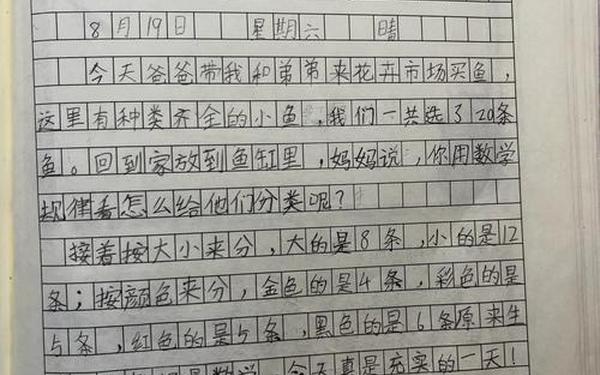 8月19日 星期六 晴
今天爸爸带我和弟弟来花卉市场买鱼，
这里有种类齐全的小鱼，我们一共选了20条
鱼。回到家放到鱼缸里，妈妈说，你用数学
规律看怎么给他们分类呢？
接着按大小来分，大的是8条，小的是12
条；按颜色来分，金色的是4条，彩色的是
5条，红色的是5条，黑色的是6条原来生
是数学，今天真是充实的一天！